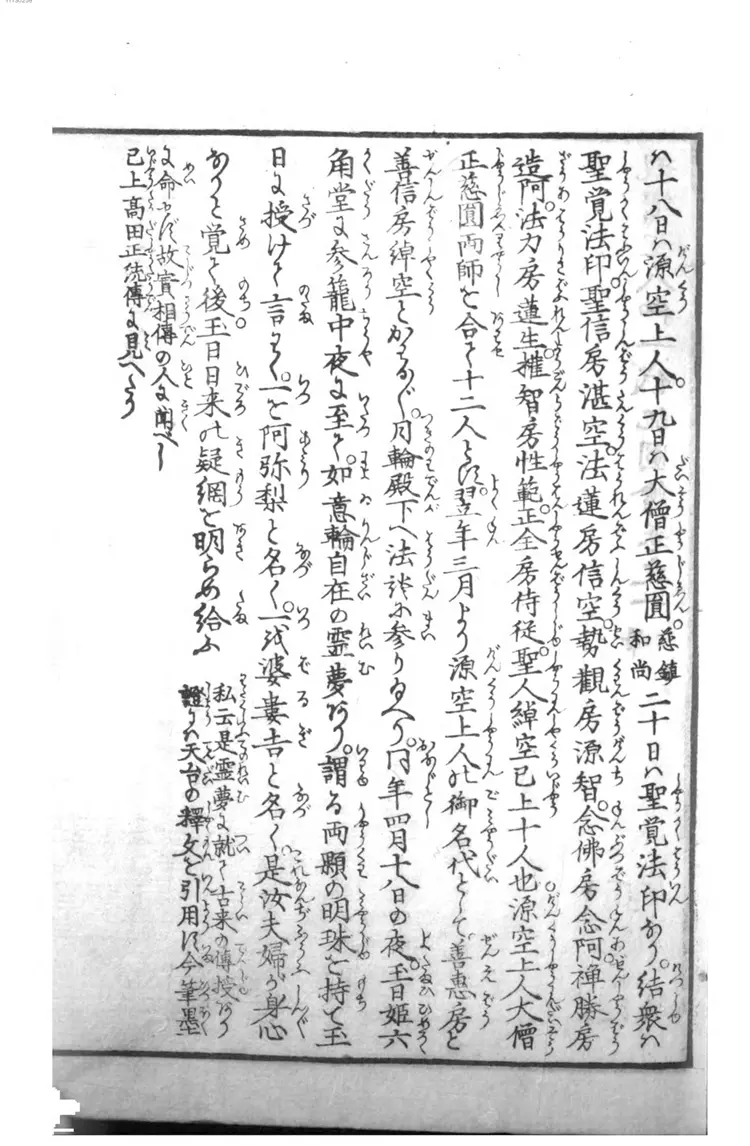 ハ十八日ハ源空上人。十九日ハ大僧正慈圓。慈鎮和尚二十日ハ聖覚法印なり。結衆ハ
聖覚法印聖信房湛空。法蓮房信空。勢観房源智。念佛房念阿。禅勝房
造阿。法力房蓮生。権智房性範。正全房侍従。聖人綽空已上十人也。源空上人大僧
正慈圓両師を合て十二人とす。翌年三月より源空上人の御名代として善恵房と
善信房綽空とかはる〴〵月輪殿下へ法談に参り給へり。同年四月十八日の夜。玉日姫六
角堂に参籠中夜に至て。如意輪自在の霊夢あり。謂る両顆の明珠を持て玉
日に授けて言く。一を阿弥梨と名く。一を婆婁吉と名く。是汝夫婦が身心
なりと覚て後。玉日日来の疑網を明らめ給ふ
私云是霊夢に就て古来の傳授あり
證りハ天台の釋文を引用す今筆墨
に命せず故實相傳の人に聞べし
已上高田正統傳に見へたり